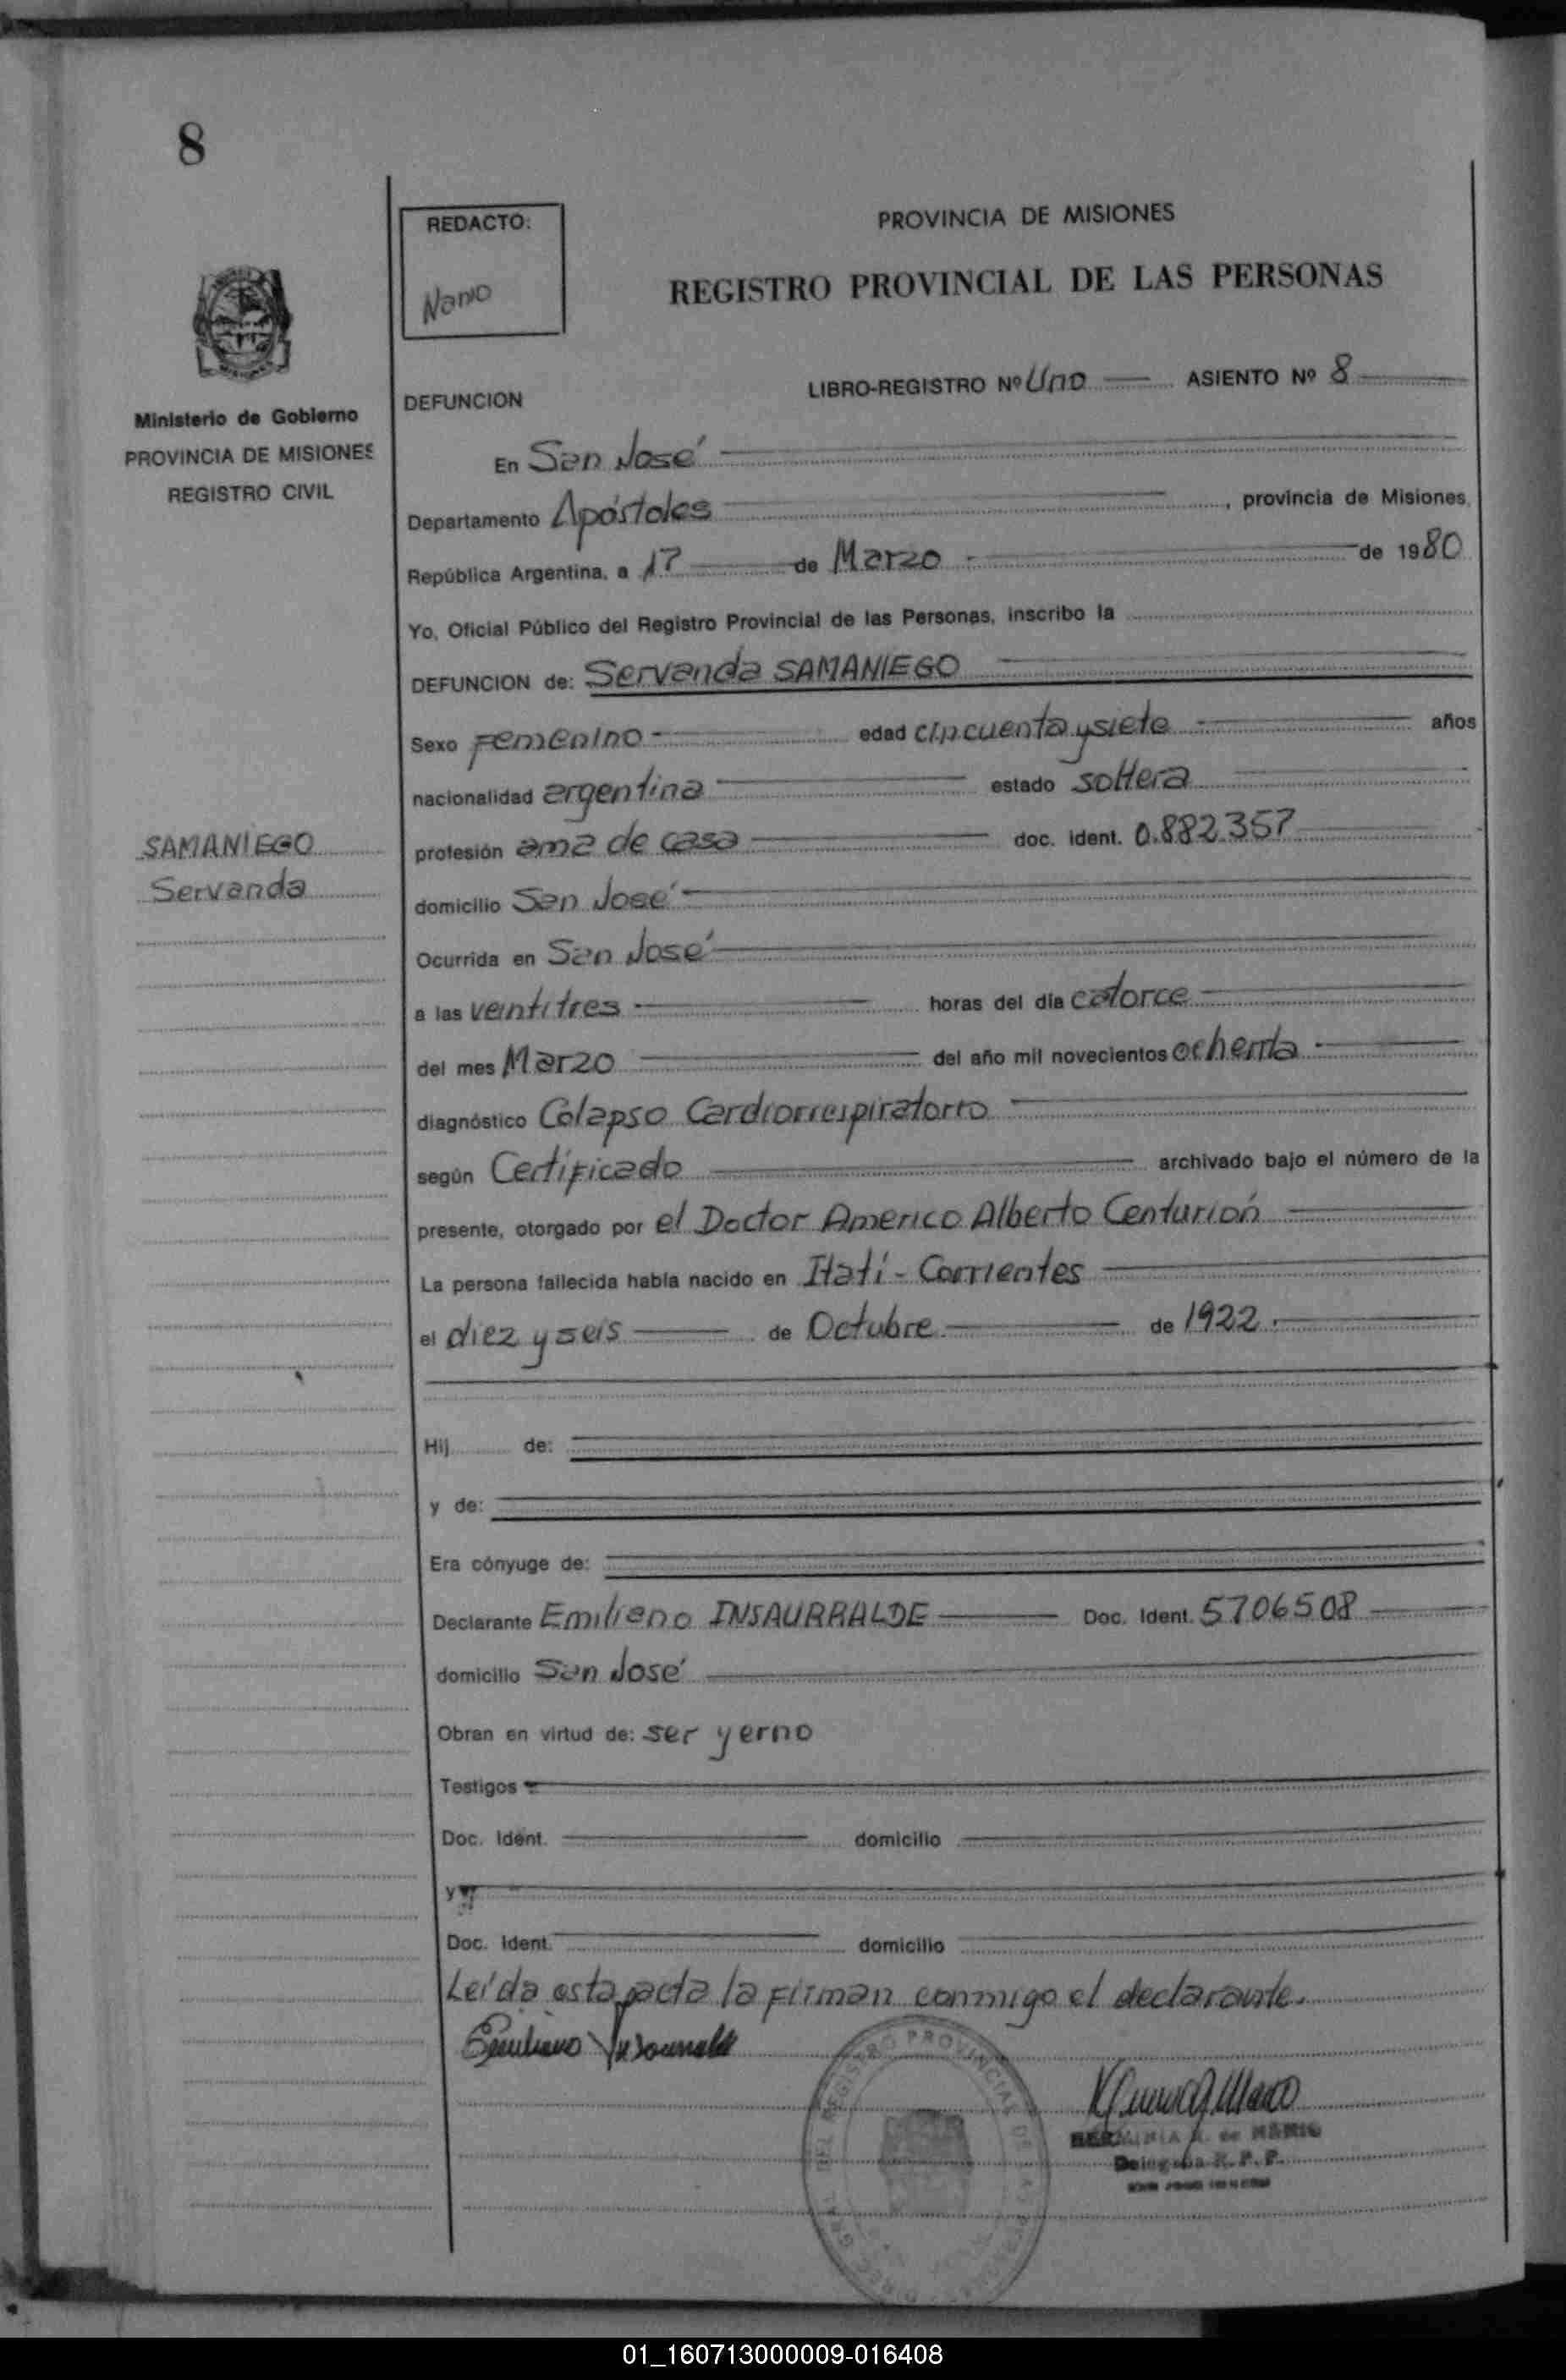 8
REDACTO:
Nanio
PROVINCIA DE MISIONES
REGISTRO PROVINCIAL DE LAS PERSONAS
Ministerio de Gobierno
PROVINCIA DE MISIONES
REGISTRO CIVIL
DEFUNCION
LIBRO-REGISTRO Nº Uno ASIENTO Nº 8
En San José
Departamento Apóstoles, provincia de Misiones,
República Argentina, a 17 de Marzo de 1980
Yo, Oficial Público del Registro Provincial de las Personas, inscribo la
DEFUNCION de: Servanda SAMANIEGO
Sexo Femenino edad cincuenta y siete años
nacionalidad argentina estado soltera
SAMANIEGO
Servanda
profesión ama de casa doc. ident. 0.882.357
domicilio San José
Ocurrida en San José
a las veintitres horas del día catorce
del mes Marzo del año mil novecientos ochenta
diagnóstico Colapso Cardiorrespiratorio
según Certificado archivado bajo el número de la
presente, otorgado por el Doctor Americo Alberto Centurión
La persona fallecida había nacido en Itatí - Corrientes
el diez y seis de Octubre de 1922.
Hij de:
y de:
Era cónyuge de:
Declarante Emiliano INSAURRALDE Doc. Ident. 5706508
domicilio San José
Obran en virtud de: ser yerno
Testigos
Doc. Ident. domicilio
y
Doc. Ident. domicilio
Leída esta acta la firman conmigo el declarante.
Emiliano Insaurralde
REGISTRO PROVINCIAL DE
HERMINIA de NANIO
Delegada R. P. P.
01_160713000009-016408